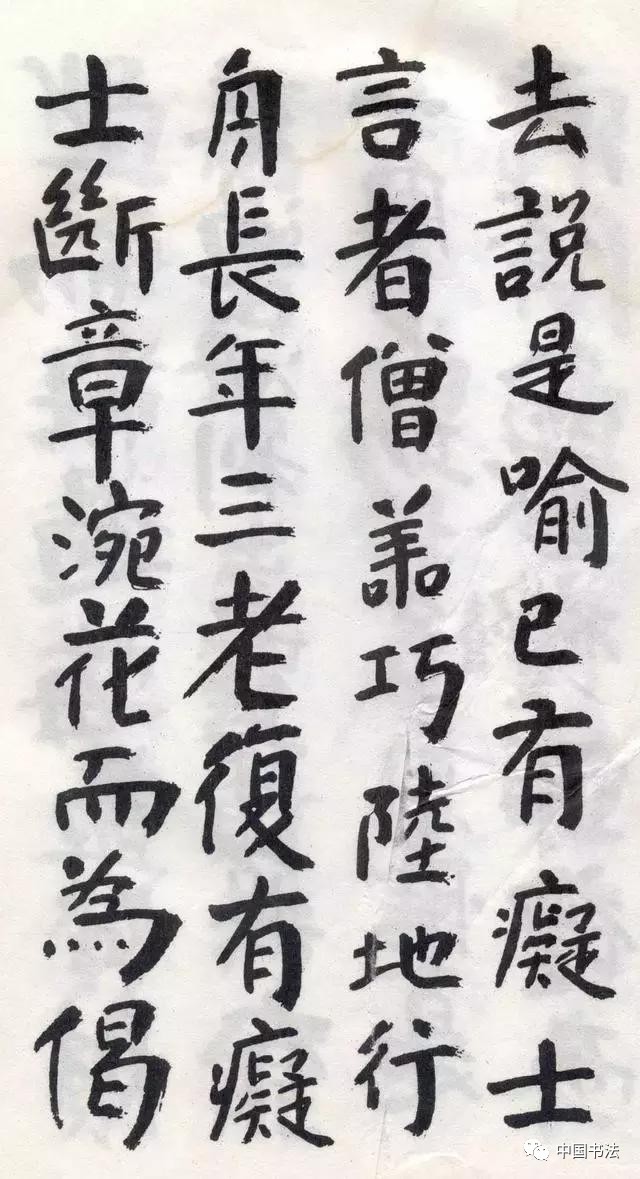 去說是喻已有癡士
言者僧善巧陸地行
舟長年三老復有癡
士斷章涴花而為偈
中国书法